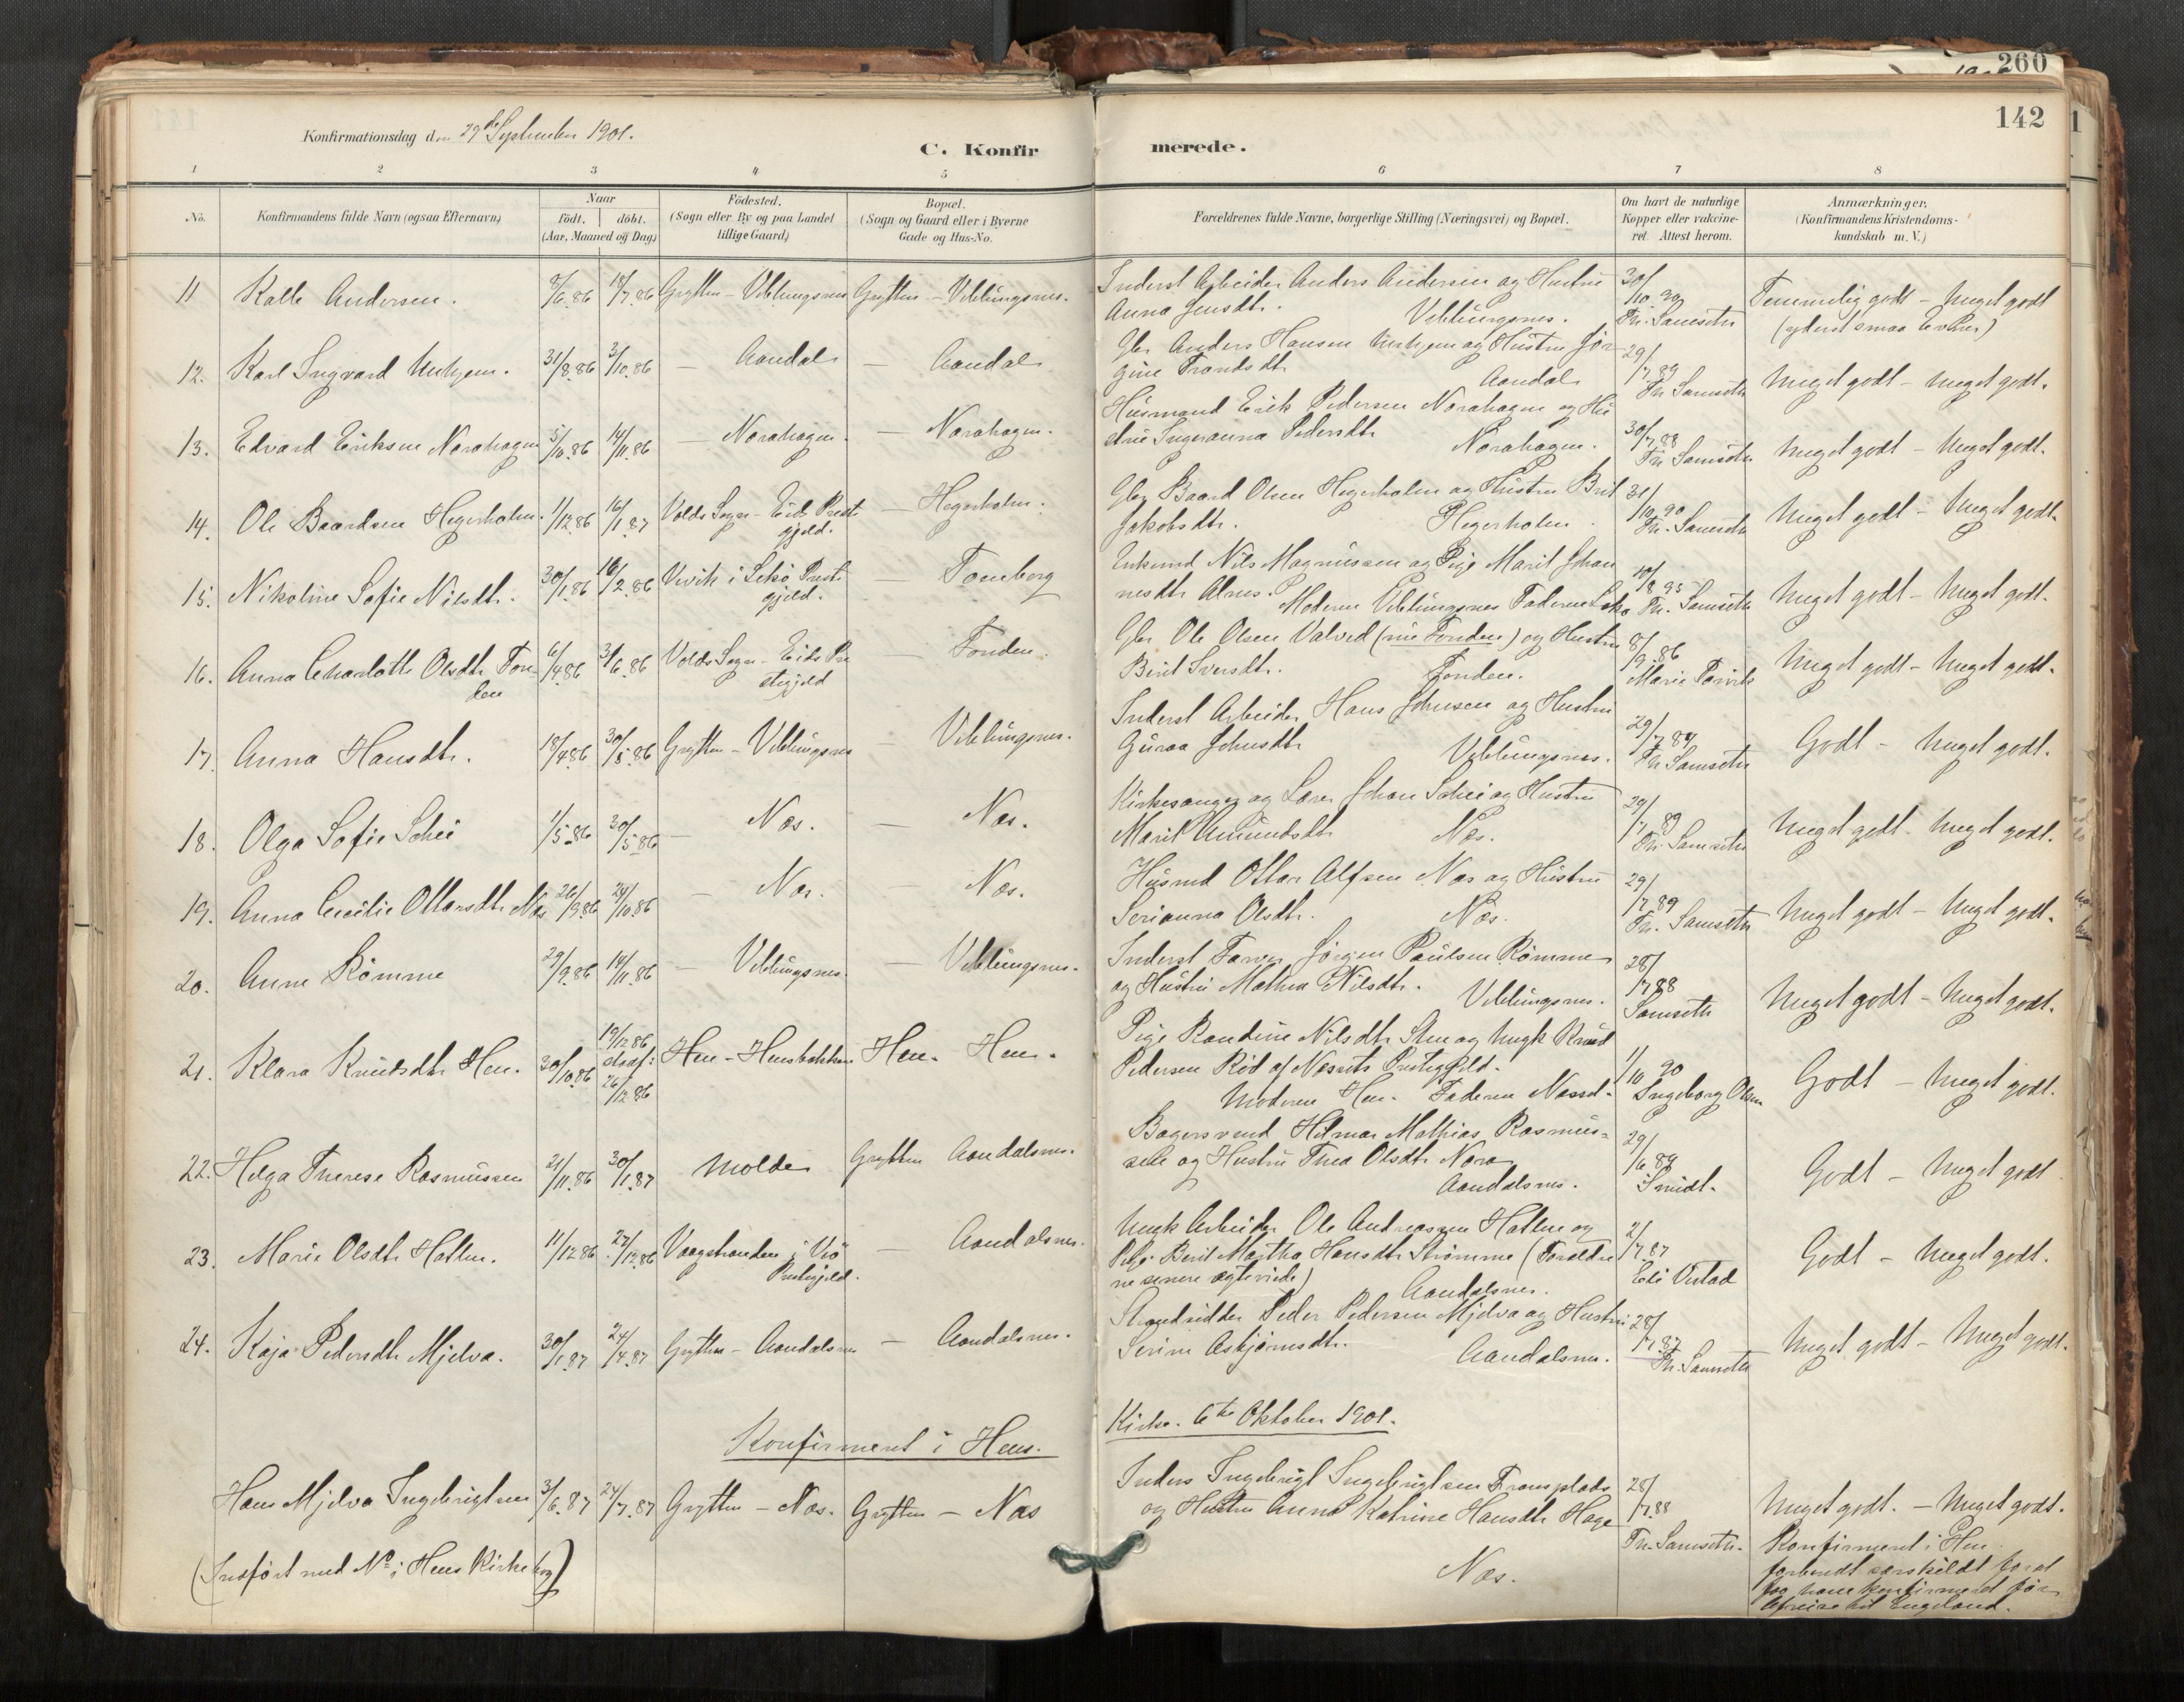 260
142
Konfirmationsdag den 29de September 1901.
C. Konfirmerede.
1 2 3 4 5 6 7 8
No. Konfirmandens fulde Navn (ogsaa Efternavn) Naar födt. döbt. (Aar, Maaned og Dag) Födested. (Sogn eller By og paa Landet tillige Gaard) Bopæl. (Sogn og Gaard eller i Byerne Gade og Hus-No. Forældrenes fulde Navne, borgerlige Stilling (Næringsvei) og Bopæl. Om havt de naturlige Kopper eller vakcineret. Attest herom. Anmærkninger. (Konfirmandens Kristendomskundskab m. V.)
11 Kalle Andersen. 8/6.86 18/7.86 Grytten - Veblungsnes Grytten - Veblungsnes. Inderst Arbeider Anders Andersen og Hustru 30/10.90
Anna Jensdtr. Veblungsnes. Th. Samseth Temmelig godt - Meget godt
(yderst smaa Evner)
12. Karl Ingvard Unhjem. 31/8.86 3/10.86 — Aandal — Aandal Gbr Anders Hansen Unhjem og Hustru Jør
gine Trondsdtr Aandal 29/7.89 Th. Samseth Meget godt - Meget godt.
13. Edvard Eriksen Norahagen 5/10.86 14/11.86 — Norahagen. — Norahagen. Husmand Erik Pedersen Norahagen og Hu
stru Ingeranna Pedersdtr Norahagen. 30/7.88 Th Samseth Meget godt - Meget godt.
14. Ole Baardsen Hegerholm. 1/12.86 16/1.87 Volds Sogn - Eids Præste
gjeld. — Hegerholm. Gbr Baard Olsen Hegerholm og Hustru Brit
Jakobsdtr. Hegerholm. 31/10.90 Th. Samseth Meget godt - Meget godt.
15. Nikoline Sofie Nilsdtr. 30/1.86 16/2.86 Vivik i Lekø Præste
gjeld. — Toneborg Enkemd Nils Magnussen og Pige Marit Johan
nesdtr Alnes. Moderen Veblungsnes Faderen Leka 10/8.95 Th. Samseth Meget godt - Meget godt.
16. Anna Charlotte Olsdtr Fon-
den 6/4.86 3/6.86 Volds Sogn - Eids Præ
stegjeld — Fonden. Gbr Ole Olsen Valved (nu Fonden) og Hustru
Berit Sversdtr. Fonden. 8/9.86 Marie Torvik Meget godt - Meget godt.
17. Anna Hansdtr. 18/4.86 30/5.86 Grytten - Veblungsnes — Veblungsnes. Inderst Arbeider Hans Johnsen og Hustru
Guraa Johnsdtr Veblungsnes. 29/7.87 Th. Samseth Godt - Meget godt.
18. Olga Sofie Schei 1/5.86 30/5.86 — Nes. — Nes. Kirkesanger og Lærer Johan Schei og Hustru
Marit Amundsdtr Nes. 29/7.89 Th. Samseth Meget godt - Meget godt.
19. Anna Cecilie Ottarsdtr Nes 26/9.86 24/10.86 — Nes. — Nes. Husmd Ottar Alfsen Nes og Hustru
Serianna Olsdtr. Nes. 29/7.89 Th. Samseth Meget godt - Meget godt.
20. Anne Römme 29/9.86 14/11.86 — Veblungsnes. — Veblungsnes. Inderst Farver Jörgen Paulsen Römme
og Hustru Mathea Nilsdtr. Veblungsnes. 28/7.88 Samseth Meget godt - Meget godt.
21. Klara Knudsdtr Hen. 30/10.86 19/12.86
stadf:
26/12.86 Hen - Hensbakken Hen. Hen. Pige Randine Nilsdtr Hen og Ungk Knud
Pedersen Rød af Nessets Prestegjeld.
Moderen Hen. Faderen Nesset. 1/10 90 Ingeborg Olsen Godt - Meget godt.
22. Helga Therese Rasmussen 21/11.86 30/1.87 Molde Grytten Aandalsnes. Bagersvend Hilmar Mathias Rasmus-
sen og Hustru Thea Olsdtr Nora
Aandalsnes. 29/6.89 Smidt. Godt - Meget godt
23. Marie Olsdtr Hatlen. 11/12.86 27/12.86 Vaagstranden i Veö
Prestegjeld. — Aandalsnes. Ungk Arbeider Ole Andreassen Hatlen og
Pige Berit Martha Hansdtr Strømme (Forældre
ne senere ægteviede) Aandalsnes. 2/7.87 Eli Vestad Godt - Meget godt.
24. Kaja Pedersdtr Mjelva. 30/1.87 24/4.87 Grytten - Aandalsnes — Aandalsnes. Strandsidder Peder Pedersen Mjelva og Hustru
Serine Asbjørnsdtr. Aandalsnes. 28/7.87 Th. Samseth Meget godt - Meget godt.
Konfirmeret i Hens. Kirke. 6te Oktober 1901.
Hans Mjelva Ingebrigtsen 3/6.87 24/7.87 Grytten - Nes. Grytten - Nes Inders Ingebrigt Ingebrigtsen
og Hustru Anna Katrine Hansdtr Hage
Nes. 28/7.88 Th. Samseth. Meget godt. - Meget godt.
(Indført med No i Hens Kirkebog) Konfirmeret i Hen
forberedt særskildt forat
kan konfirmeret før
Afreise til England.